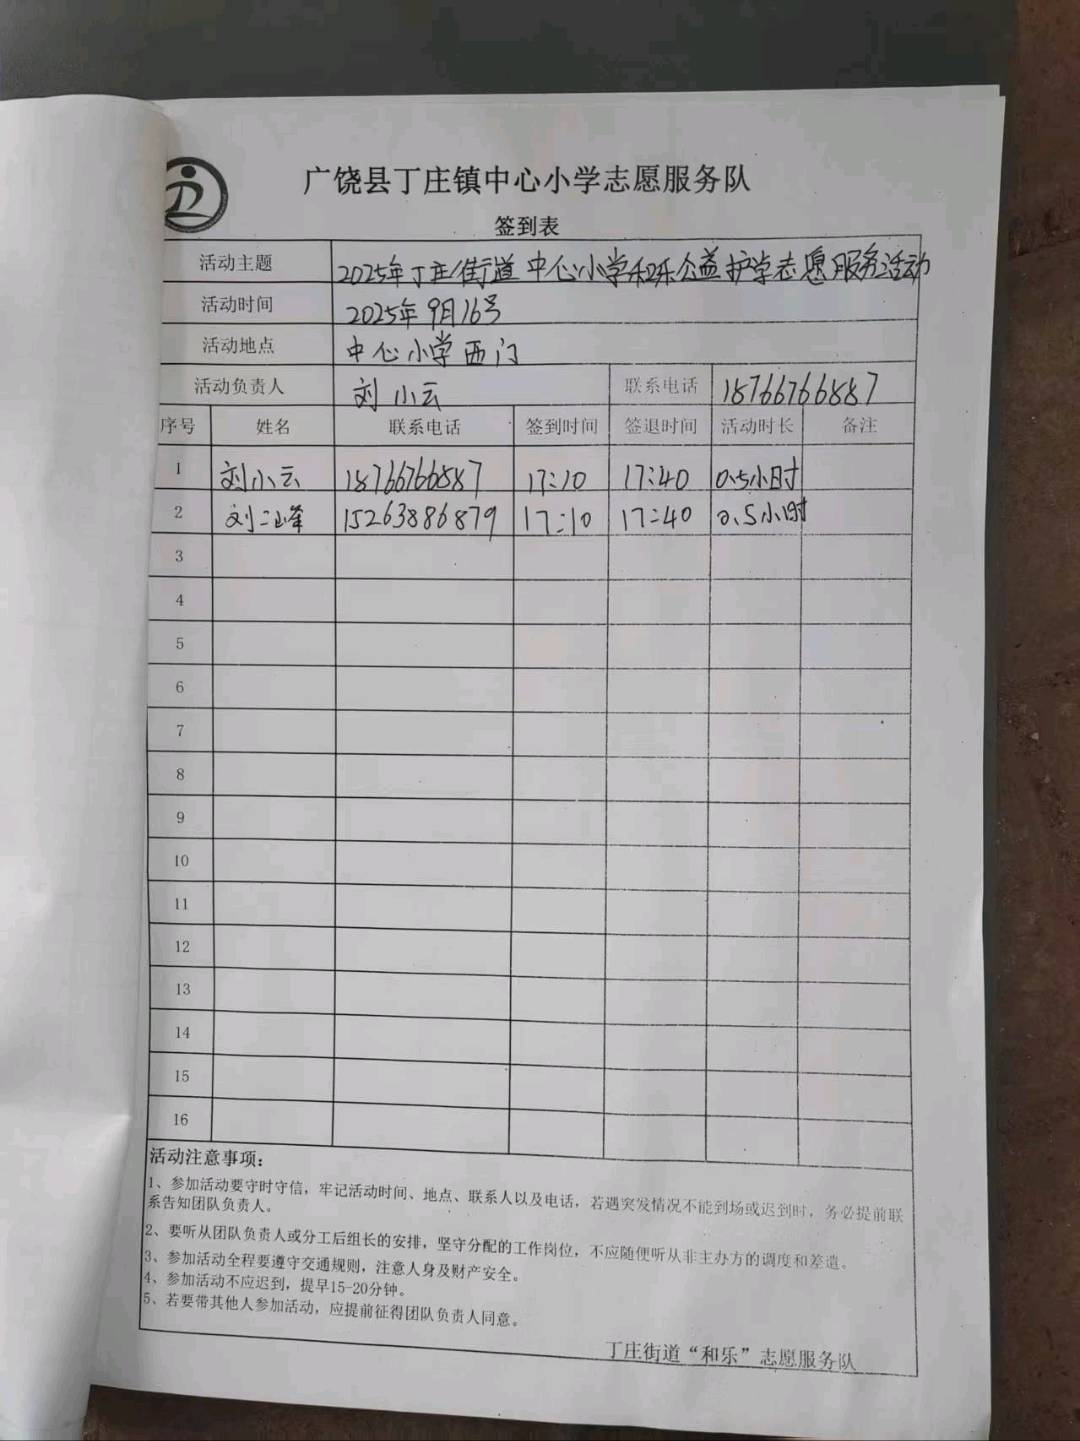 广饶县丁庄镇中心小学志愿服务队
签到表
活动主题 2025年丁庄街道中心小学和乐公益护学志愿服务活动
活动时间 2025年9月16号
活动地点 中心小学西门
活动负责人 刘小云 联系电话 18766766887
序号 姓名 联系电话 签到时间 签退时间 活动时长 备注
1 刘小云 18766766887 17:10 17:40 0.5小时
2 刘 峰 15263886879 17:10 17:40 0.5小时
3
4
5
6
7
8
9
10
11
12
13
14
15
16
活动注意事项：
1、参加活动要守时守信，牢记活动时间、地点、联系人以及电话，若遇突发情况不能到场或迟到时，务必提前联
系告知团队负责人。
2、要听从团队负责人或分工后组长的安排，坚守分配的工作岗位，不应随便听从非主办方的调度和差遣。
3、参加活动全程要遵守交通规则，注意人身及财产安全。
4、参加活动不应迟到，提早15-20分钟。
5、若要带其他人参加活动，应提前征得团队负责人同意。
丁庄街道“和乐”志愿服务队